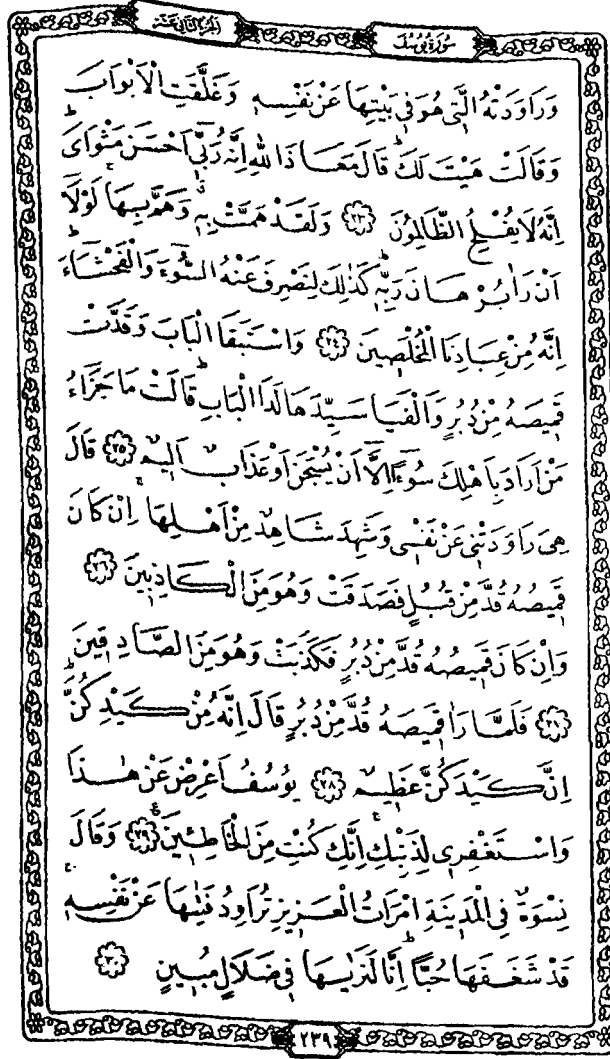 الجزء الثاني عشر
سورة يوسف
وَرَاوَدَتْهُ الَّتِي هُوَ فِي بَيْتِهَا عَنْ نَفْسِهِ وَغَلَّقَتِ الْاَبْوَابَ
وَقَالَتْ هَيْتَ لَكَ قَالَ مَعَاذَ اللّٰهِ اِنَّهُ رَبِّٓي اَحْسَنَ مَثْوَايَ
اِنَّهُ لَا يُفْلِحُ الظَّالِمُونَ ٢٣ وَلَقَدْ هَمَّتْ بِهِ وَهَمَّ بِهَا لَوْلَٓا
اَنْ رَاٰ بُرْهَانَ رَبِّهِ كَذٰلِكَ لِنَصْرِفَ عَنْهُ السُّٓوءَ وَالْفَحْشَٓاءَ
اِنَّهُ مِنْ عِبَادِنَا الْمُخْلَصِينَ ٢٤ وَاسْتَبَقَا الْبَابَ وَقَدَّتْ
قَمِيصَهُ مِنْ دُبُرٍ وَاَلْفَيَا سَيِّدَهَا لَدَا الْبَابِ قَالَتْ مَا جَزَٓاءُ
مَنْ اَرَادَ بِاَهْلِكَ سُٓوءًا اِلَّٓا اَنْ يُسْجَنَ اَوْ عَذَابٌ اَلِيمٌ ٢٥ قَالَ
هِيَ رَاوَدَتْنِي عَنْ نَفْسِي وَشَهِدَ شَاهِدٌ مِنْ اَهْلِهَا اِنْ كَانَ
قَمِيصُهُ قُدَّ مِنْ قُبُلٍ فَصَدَقَتْ وَهُوَ مِنَ الْكَاذِبِينَ ٢٦
وَاِنْ كَانَ قَمِيصُهُ قُدَّ مِنْ دُبُرٍ فَكَذَبَتْ وَهُوَ مِنَ الصَّادِقِينَ
٢٧ فَلَمَّا رَاٰ قَمِيصَهُ قُدَّ مِنْ دُبُرٍ قَالَ اِنَّهُ مِنْ كَيْدِكُنَّ
اِنَّ كَيْدَكُنَّ عَظِيمٌ ٢٨ يُوسُفُ اَعْرِضْ عَنْ هٰذَا
وَاسْتَغْفِرِي لِذَنْبِكِ اِنَّكِ كُنْتِ مِنَ الْخَاطِـِٔينَ ٢٩ وَقَالَ
نِسْوَةٌ فِي الْمَدِينَةِ امْرَاَتُ الْعَزِيزِ تُرَاوِدُ فَتٰيهَا عَنْ نَفْسِهِ
قَدْ شَغَفَهَا حُبًّا اِنَّا لَنَرٰيهَا فِي ضَلَالٍ مُبِينٍ ٣٠
٢٣٩